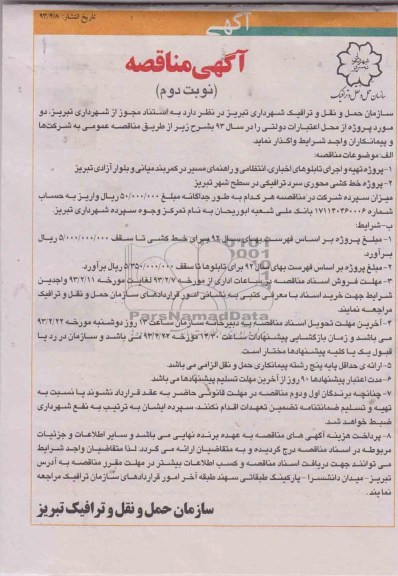 آگهی
تاریخ انتشار: ۹۳/۲/۸
سازمان حمل و نقل و ترافیک
آگهی مناقصه
(نوبت دوم)
سازمان حمل و نقل و ترافیک شهرداری تبریز در نظر دارد به استناد مجوز از شهرداری تبریز، دو
مورد پروژه از محل اعتبارات دولتی را در سال ۹۳ بشرح زیر از طریق مناقصه عمومی به شرکت‌ها
و پیمانکاران واجد شرایط واگذار نماید.
الف: موضوعات مناقصه:
۱- پروژه تهیه و اجرای تابلوهای اخباری، انتظامی و راهنمای مسیر در کمربند میانی و بلوار آزادی تبریز
۲- پروژه خط کشی محوری سرد ترافیکی در سطح شهر تبریز
میزان سپرده شرکت در مناقصه هر کدام به طور جداگانه مبلغ ۵۰/۰۰۰/۰۰۰ ریال واریز به حساب
شماره ۱۷۱۱۳۰۳۶۰۰۰۶ بانک ملی شعبه ابوریحان به نام تمرکز وجوه سپرده شهرداری تبریز.
ب- شرایط:
۱- مبلغ پروژه بر اساس فهرست بهای سال ۹۲ برای خط کشی تا سقف ۵/۰۰۰/۰۰۰/۰۰۰ ریال
برآورد.
۲- مبلغ پروژه بر اساس فهرست بهای سال ۹۲ برای تابلوها تا سقف ۵/۳۵۰/۰۰۰/۰۰۰ ریال برآورد.
۳- مهلت فروش اسناد مناقصه در ساعات اداری از مورخه ۹۳/۲/۷ لغایت مورخه ۹۳/۲/۱۱ واجدین
شرایط جهت خرید اسناد با معرفی کتبی به نشانی امور قراردادهای سازمان حمل و نقل و ترافیک
مراجعه نمایند.
۴- آخرین مهلت تحویل اسناد مناقصه به دبیرخانه سازمان ساعت ۱۳ روز دوشنبه مورخه ۹۳/۲/۲۲
می باشد و زمان بازگشایی پیشنهادات ساعت ۱۳/۳۰ مورخه ۹۳/۲/۲۲ می باشد و سازمان در رد یا
قبول یک یا کلیه پیشنهادها مختار است.
۵- ارائه ی حداقل پایه پنج رشته پیمانکاری حمل و نقل الزامی می باشد.
۶- مدت اعتبار پیشنهادها ۹۰ روز از آخرین مهلت تسلیم پیشنهادها می باشد.
۷- چنانچه برندگان اول و دوم مناقصه در مهلت قانونی حاضر به عقد قرارداد نشوند یا نسبت به
تهیه و تسلیم ضمانتنامه تضمین تعهدات اقدام نکنند، سپرده ایشان به ترتیب به نفع شهرداری
ضبط خواهد شد.
۸- پرداخت هزینه آگهی های مناقصه به عهده برنده نهایی می باشد و سایر اطلاعات و جزئیات
مربوطه در اسناد مناقصه درج گردیده و به متقاضیان ارائه می گردد لذا متقاضیان واجد شرایط
می توانند جهت دریافت اسناد مناقصه و کسب اطلاعات بیشتر در مهلت مقرر مناقصه به آدرس
تبریز - میدان دانشسرا - پارکینگ طبقاتی سهند طبقه آخر امور قراردادهای سازمان ترافیک مراجعه
نمایند.
سازمان حمل و نقل و ترافیک تبریز
ParsNamadData